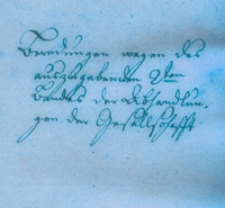 Beredungen wegen des
auszugebenden 2ten
Bandes der Abhandlun¬
gen der Gesellschafft